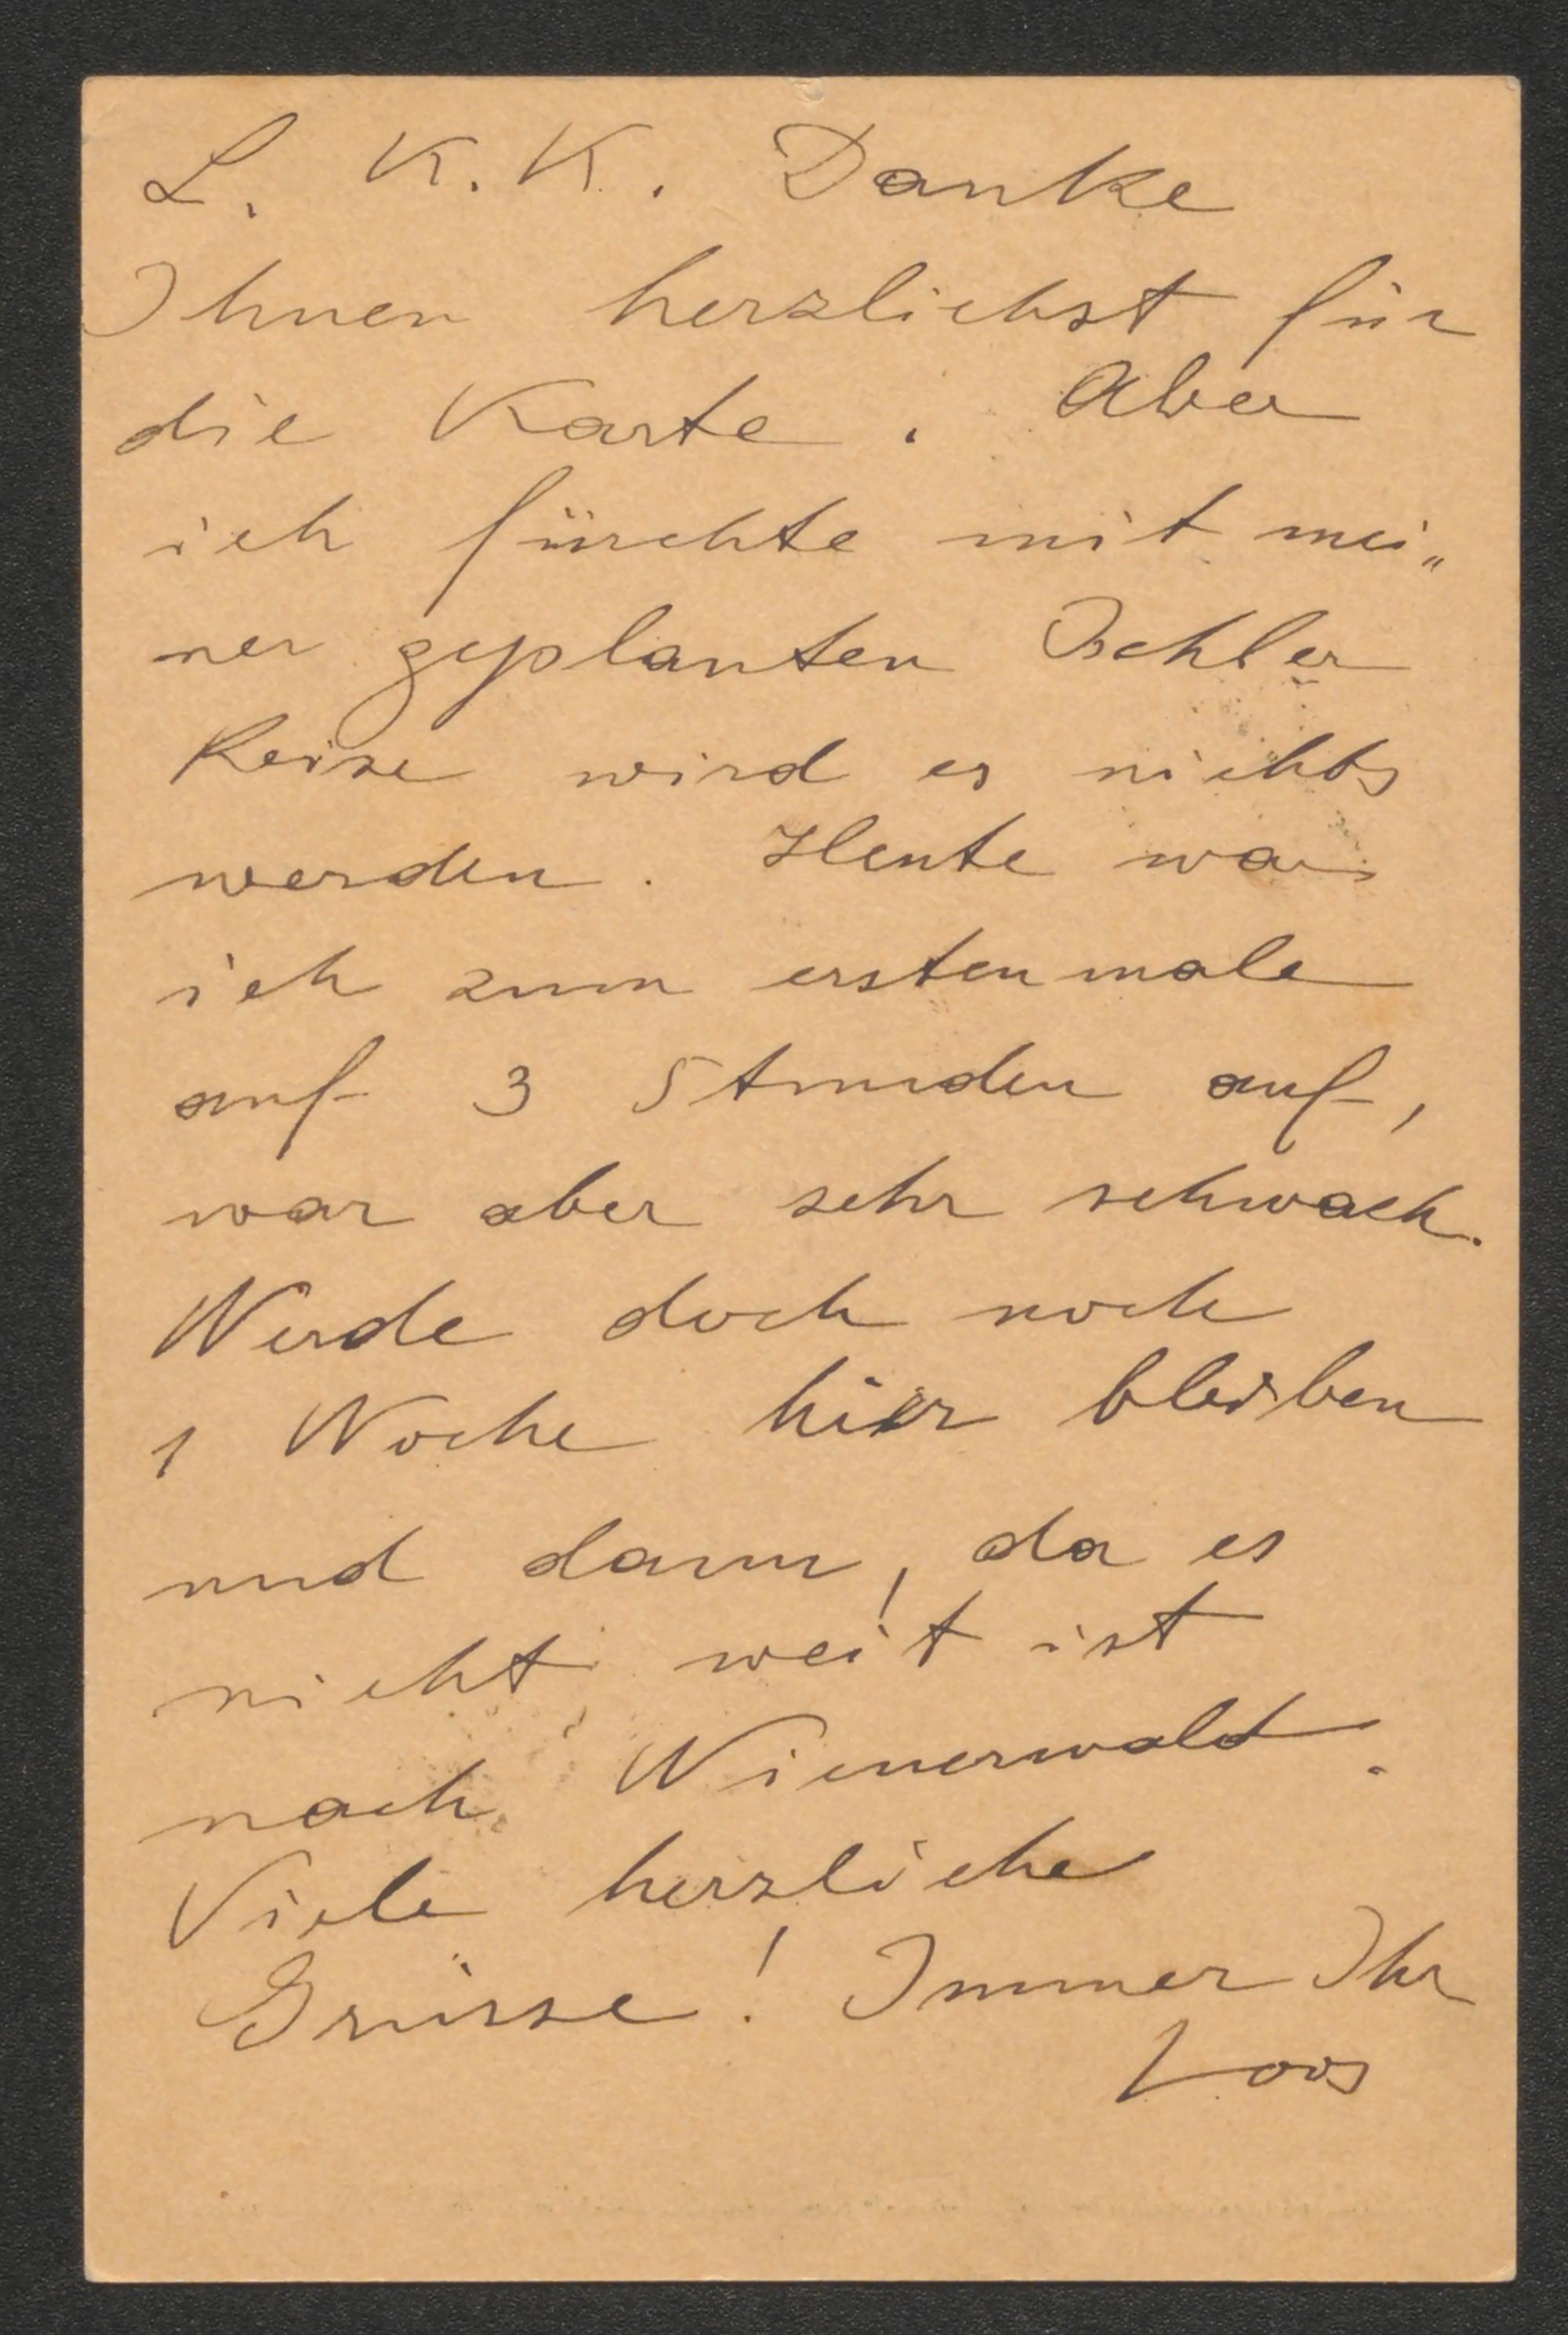 L. K. K. Danke
Ihnen herzlichst für
die Karte. Aber
ich fürchte mit mei„
ner geplanten Ischler
Reise wird es nichts
werden. Heute war
ich zum erstenmale
auf 3 Stunden auf,
war aber sehr schwach.
Werde doch noch
1 Woche hier bleiben
und dann, da es
nicht weit ist
nach Wienerwald.
Viele herzliche
Grüsse! Immer Ihr
Loos